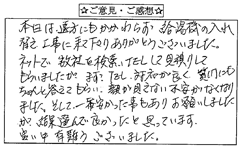 ☆ご意見・ご感想☆
本日は遠方にもかかわらず 給湯器の入れ
替え工事に来て下りありがとうございました。
ネットで 数社を検索、TELして見積りして
もらいましたが まず、TEL 対応が良く 質問にも
ちゃんと答えてもらい、顔が見えない不安がなくなり
ました。そして、一番安かった事もあり お願いしました
が、結果 選んで良かったと思っています。
暑い中 有難うございました。